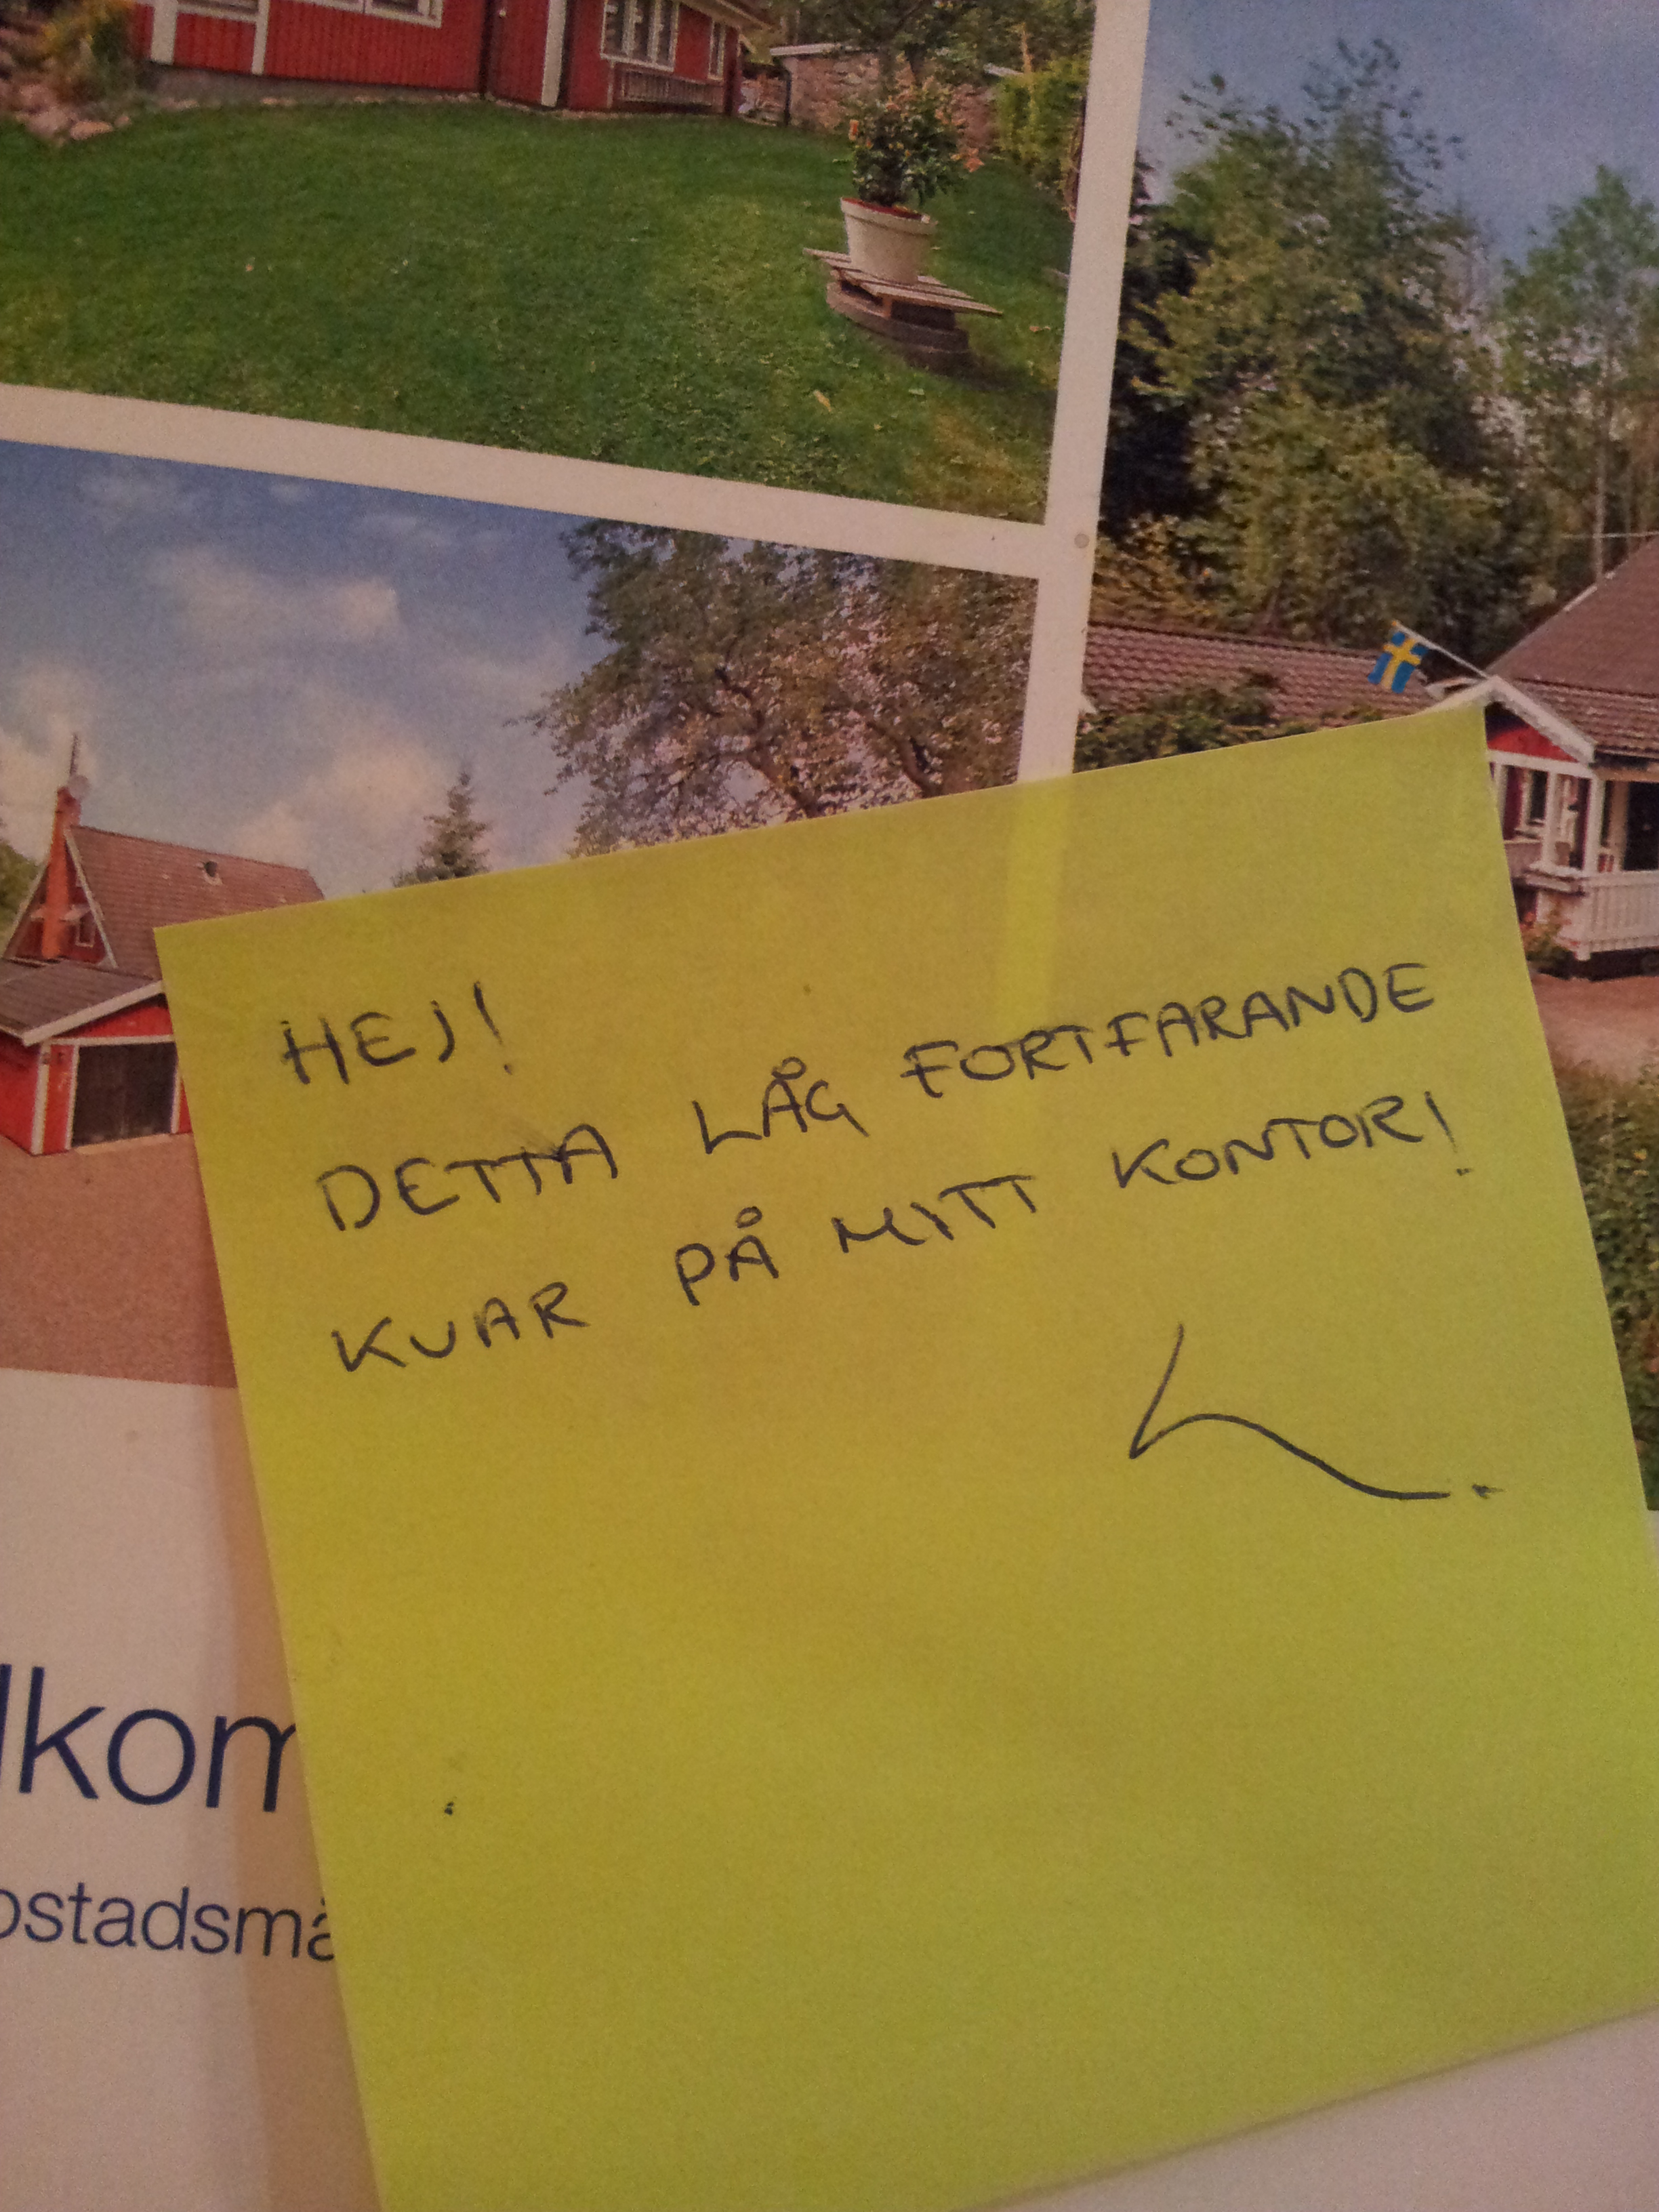 HEJ!
DETTA LÅG FORTFARANDE
KVAR PÅ MITT KONTOR!
L.
lkom
ostadsmä